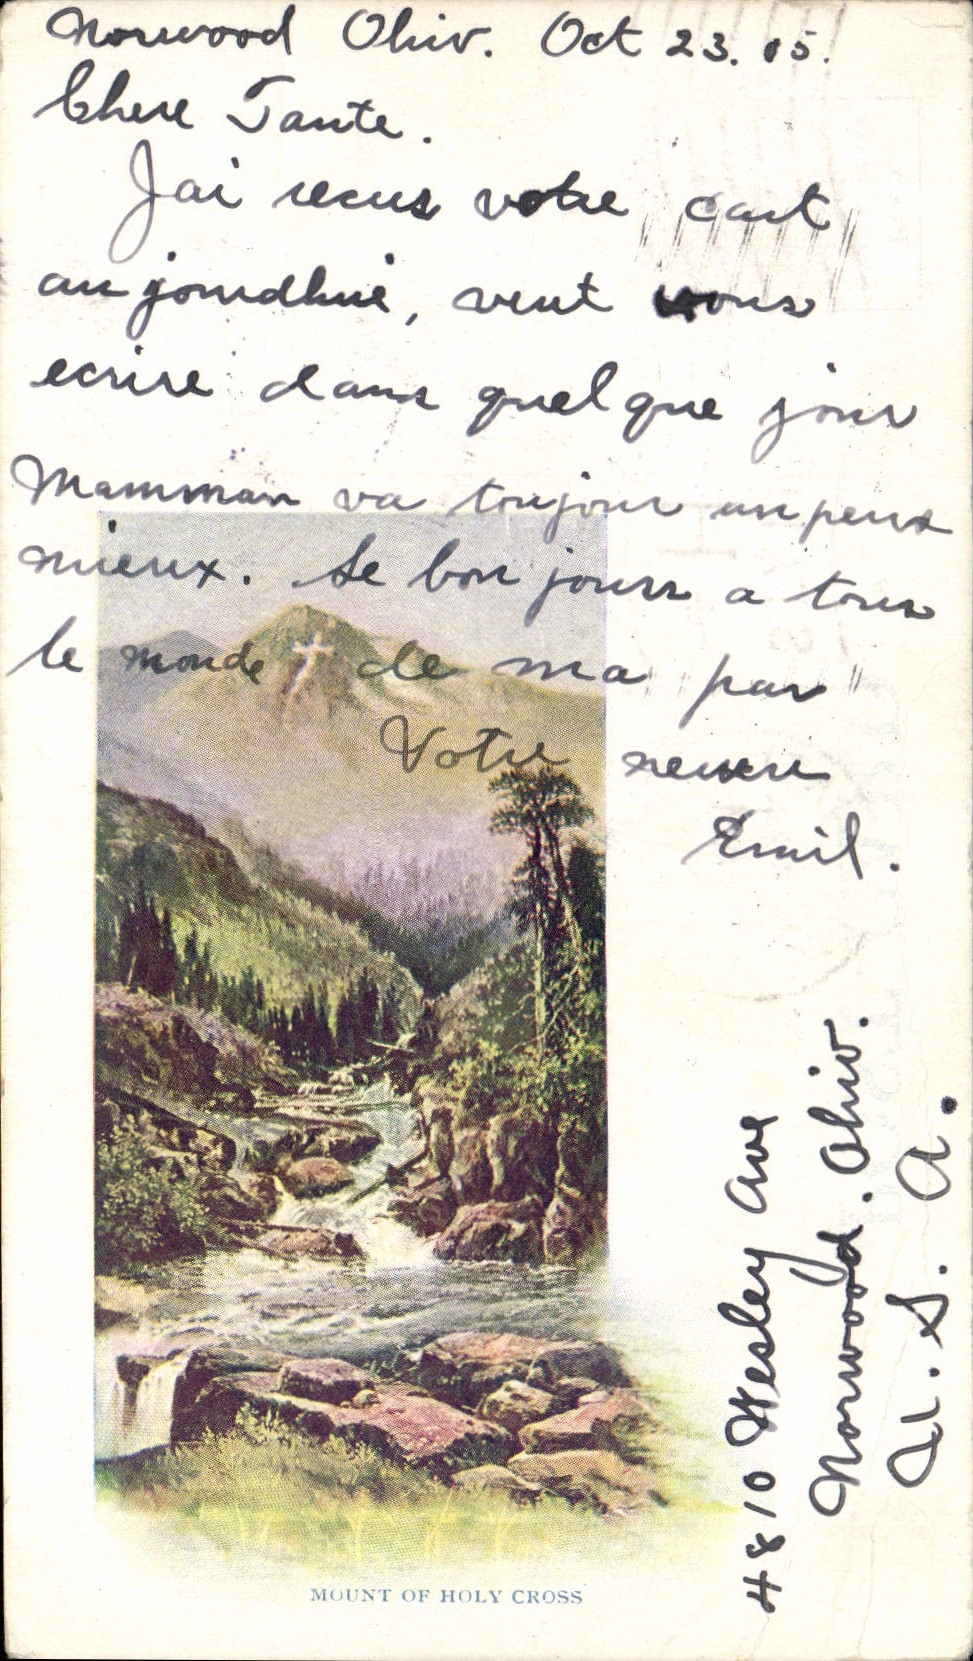 Norwood Ohio. Oct 23. 05.
Chere Tante.
Jai recus votre cart
au jourdhui, veut vous
ecrire dans quelque jour
Mamman va toujour un peux
mieux. Le bon jours a tous
le monde de ma par
Votre neveu
Emil.
4810 Wesley Ave
Norwood. Ohio.
U. S. A.
MOUNT OF HOLY CROSS